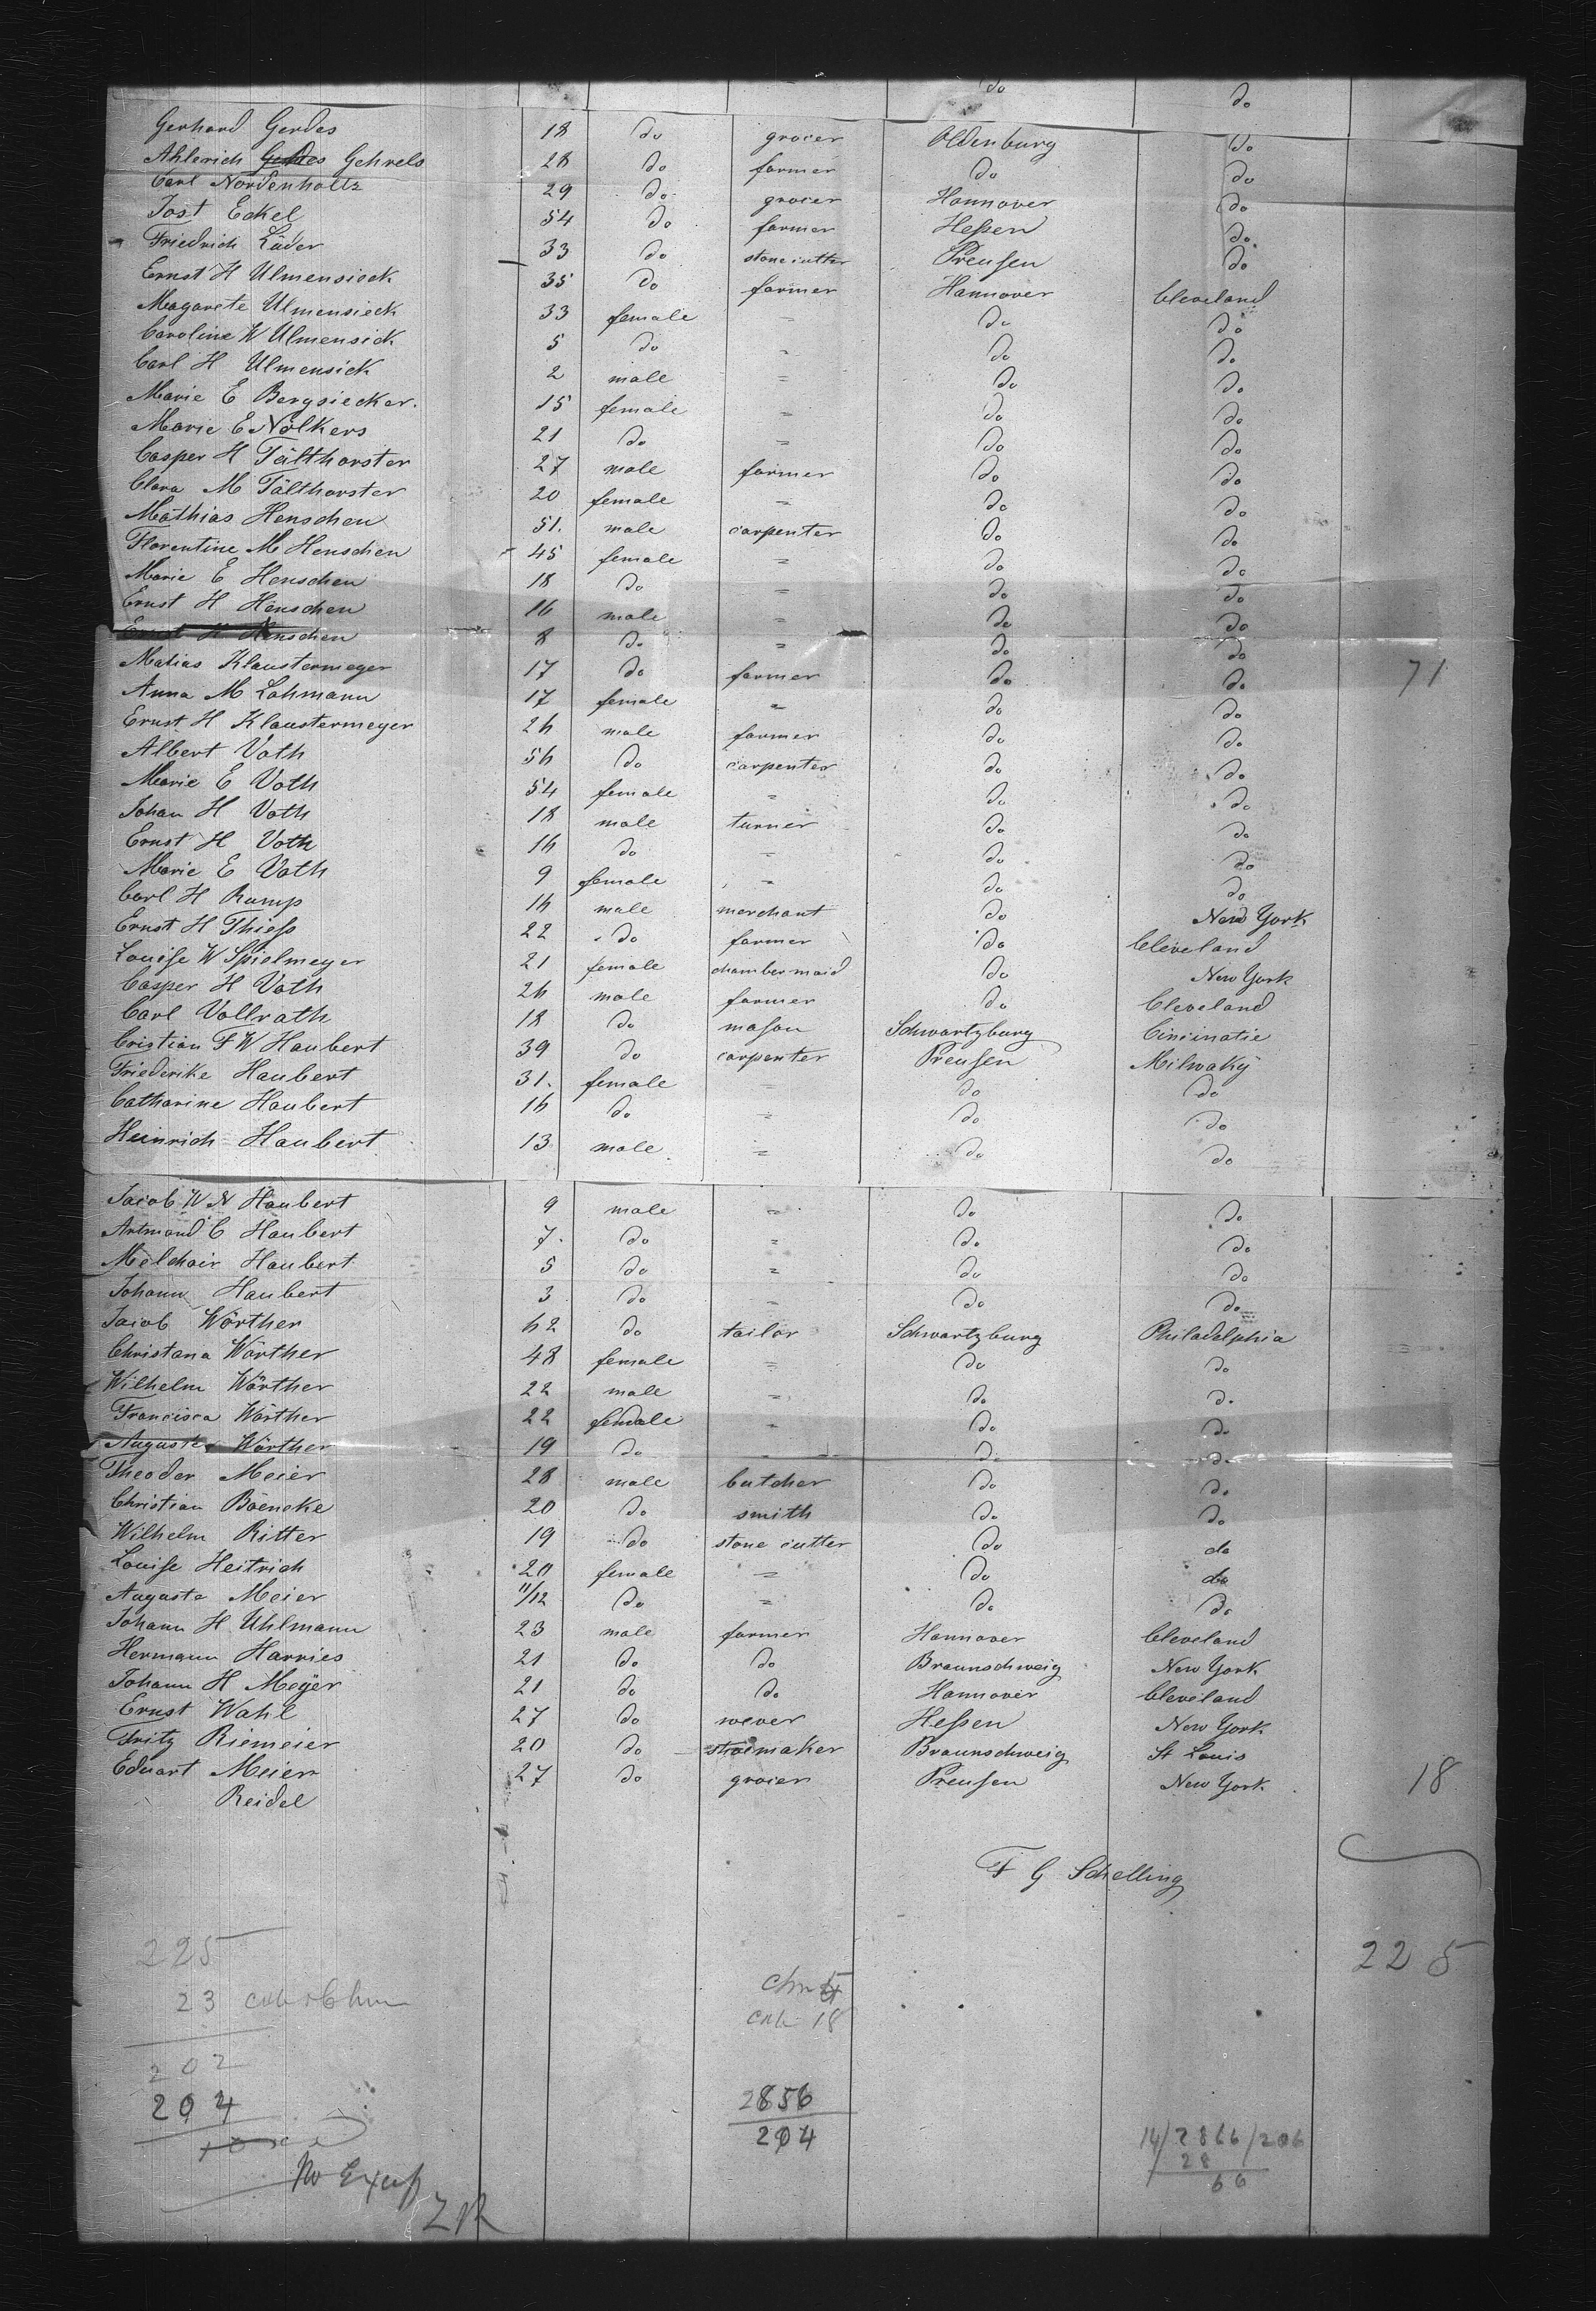 do do
Gerhard Gerdes 18 do grocer Oldenburg do
Ahlerich Gerdes Gehrels 28 do farmer do do
Carl Nordenholtz 29 do grocer Hannover do
Jost Eckel 54 do farmer Heßen do
Friedrich Lüder 33 do stone cutter Preusen do
Ernst H Ulmensieck 35 do farmer Hannover Cleveland
Magarete Ulmensieck 33 female = do do
Caroline W Ulmensick 5 do = do do
Carl H Ulmensick 2 male = do do
Marie E Bergsiecker. 15 female = do do
Marie E Nölkers 21 do = do do
Casper H Tälthorster 27 male farmer do do
Clara M Tälthorster 20 female = do do
Mathias Henschen 51. male carpenter do do
Florentine M Henschen 45 female = do do
Marie E Henschen 18 do = do do
Ernst H Henschen 16 male = do do
Ernst H Henschen 8 do = do do
Matias Klaustermeyer 17 do farmer do do 71
Anna M Lohmann 17 female = do do
Ernst H Klaustermeyer 26 male farmer do do
Albert Voth 56 do carpenter do do
Marie E Voth 54 female = do do
Johan H Voth 18 male turner do do
Ernst H Voth 16 do = do do
Marie E Voth 9 female = do do
Carl H Rump 16 male merchant do New York
Ernst H Thieß 22 do farmer do Cleveland
Louise W Spielmeyer 21 female chambermaid do New York
Casper H Voth 26 male farmer do Cleveland
Carl Vollrath 18 do mason Schwartzburg Cincinatie
Cristian F W Haubert 39 do carpenter Preusen Milwaky
Friederike Haubert 31. female = do do
Catharine Haubert 16 do = do do
Heinrich Haubert 13 male = do do
Jacob W N Haubert 9 male = do do
Artmand C Haubert 7. do = do do
Melchair Haubert 5 do = do do
Johann Haubert 3 do = do do
Jacob Wörther 62 do tailor Schwartzburg Philadelphia
Christana Wörther 48 female = do do
Wilhelm Wörther 22 male = do do
Francisca Wörther 22 female = do do
Auguste Wörther 19 do = do do
Theodor Meier 28 male butcher do do
Christian Böencke 20 do smith do do
Wilhelm Ritter 19 do stone cutter do do
Louise Heitrich 20 female = do do
Auguste Meier 11/12 do = do do
Johann H Uhlmann 23 male farmer Hannover Cleveland
Hermann Harries 21 do do Braunschweig New York
Johann H Meÿer 21 do do Hannover Cleveland
Ernst Wahl 27 do wever Heßen New York
Fritz Riemeier 20 do shoemaker Braunschweig St Louis
Eduart Meier 27 do grocer Preusen New York 18
Reidel
F G Schelling
225 225
23
18
202
204
2856
204
14/2866/206
28
66
No